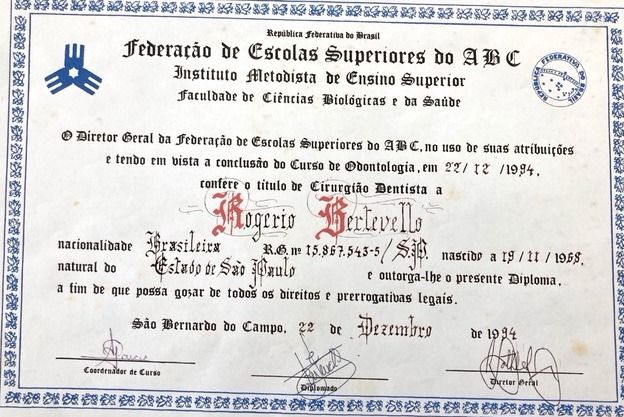 República Federativa do Brasil
Federação de Escolas Superiores do ABC
Instituto Metodista de Ensino Superior
Faculdade de Ciências Biológicas e da Saúde
REPÚBLICA FEDERATIVA DO BRASIL
O Diretor Geral da Federação de Escolas Superiores do ABC, no uso de suas atribuições
e tendo em vista a conclusão do Curso de Odontologia, em 22/12/1994,
confere o título de Cirurgião Dentista a
Rogerio Bertevello
nacionalidade Brasileira R.G. nº 15.867.543-5/S.P. nascido a 19/11/1968,
natural do Estado de São Paulo e outorga-lhe o presente Diploma,
a fim de que possa gozar de todos os direitos e prerrogativas legais.
São Bernardo do Campo, 22 de Dezembro de 1994
Coordenador de Curso
Diplomado
Diretor Geral